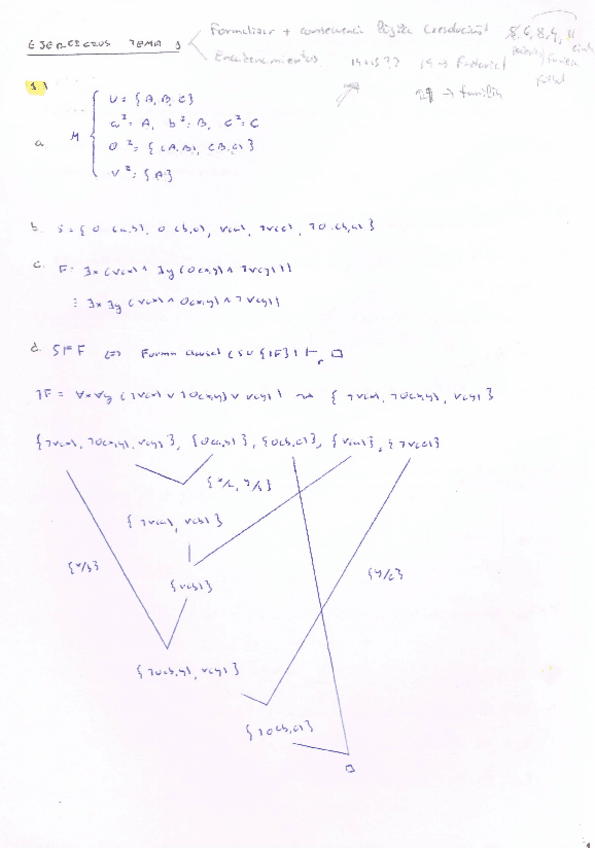 EJERCICIOS TEMA 1
Formalizar + consecuencia lógica (resolución)
Encadenamientos
19 → Federico?
→ familia
1.1
a M { U = {A, B, C}
aᴵ = A, bᴵ = B, cᴵ = C
Oᴵ = {(A,B), (B,C)}
Vᴵ = {A}
b. S = { O(a,b), O(b,c), V(a), ¬V(c), ¬O(b,a) }
c. F: ∃x (V(x) ∧ ∃y (O(x,y) ∧ ¬V(y)))
≡ ∃x ∃y (V(x) ∧ O(x,y) ∧ ¬V(y))
d. S ⊨ F ⇔ Forma clausal (S ∪ {¬F}) ⊢ᵣ □
¬F ≡ ∀x∀y (¬V(x) ∨ ¬O(x,y) ∨ V(y)) ⇝ { ¬V(x), ¬O(x,y), V(y) }
{¬V(x), ¬O(x,y), V(y)}, {O(a,b)}, {O(b,c)}, {V(a)}, {¬V(c)}
{x/a, y/b}
{ ¬V(a), V(b) }
{x/b}
{V(b)}
{y/c}
{ ¬O(b,y), V(y) }
{ ¬O(b,c) }
□